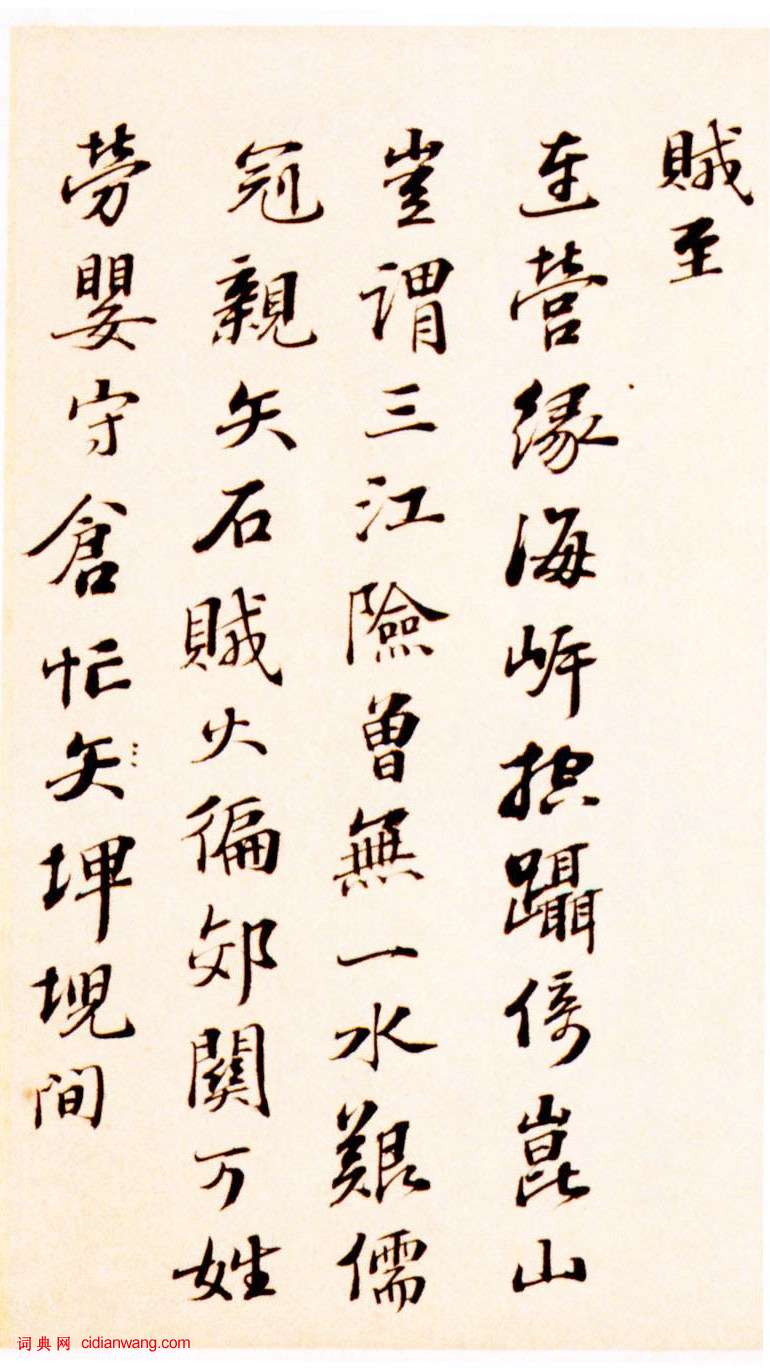 賊至
連營緣海岸控躡倚崑山
豈謂三江險曾無一水艱儒
冠親矢石賊火徧郊關万姓
勞嬰守倉忙矢埤堄間
词典网 cidianwang.com